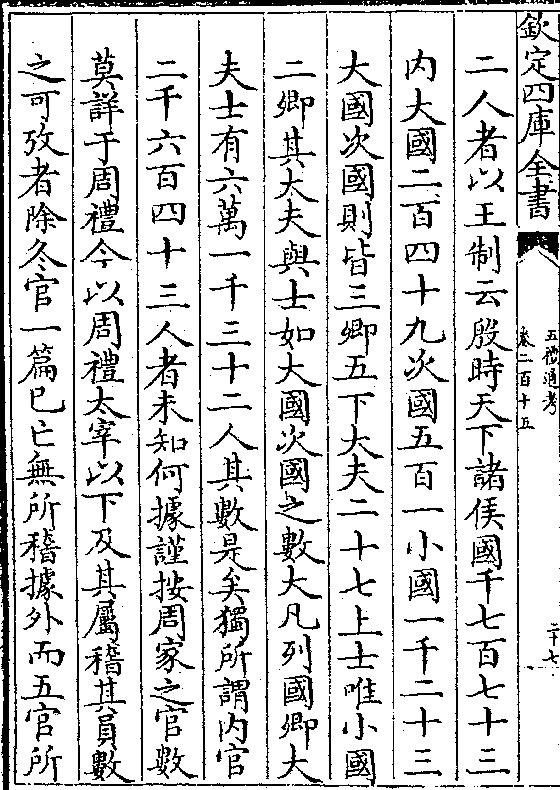 欽定四庫全書
五禮通考
卷二百十五
二十七
二人者以王制云殷時天下諸侯國千七百七十三
內大國二百四十九次國五百一小國一千二十三
大國次國則皆三卿五下大夫二十七上士唯小國
二卿其大夫與士如大國次國之數大凡列國卿大
夫士有六萬一千三十二人其數是矣獨所謂內官
二千六百四十三人者未知何據謹按周家之官數
莫詳于周禮今以周禮太宰以下及其屬稽其員數
之可攷者除冬官一篇已亡無所稽據外而五官所